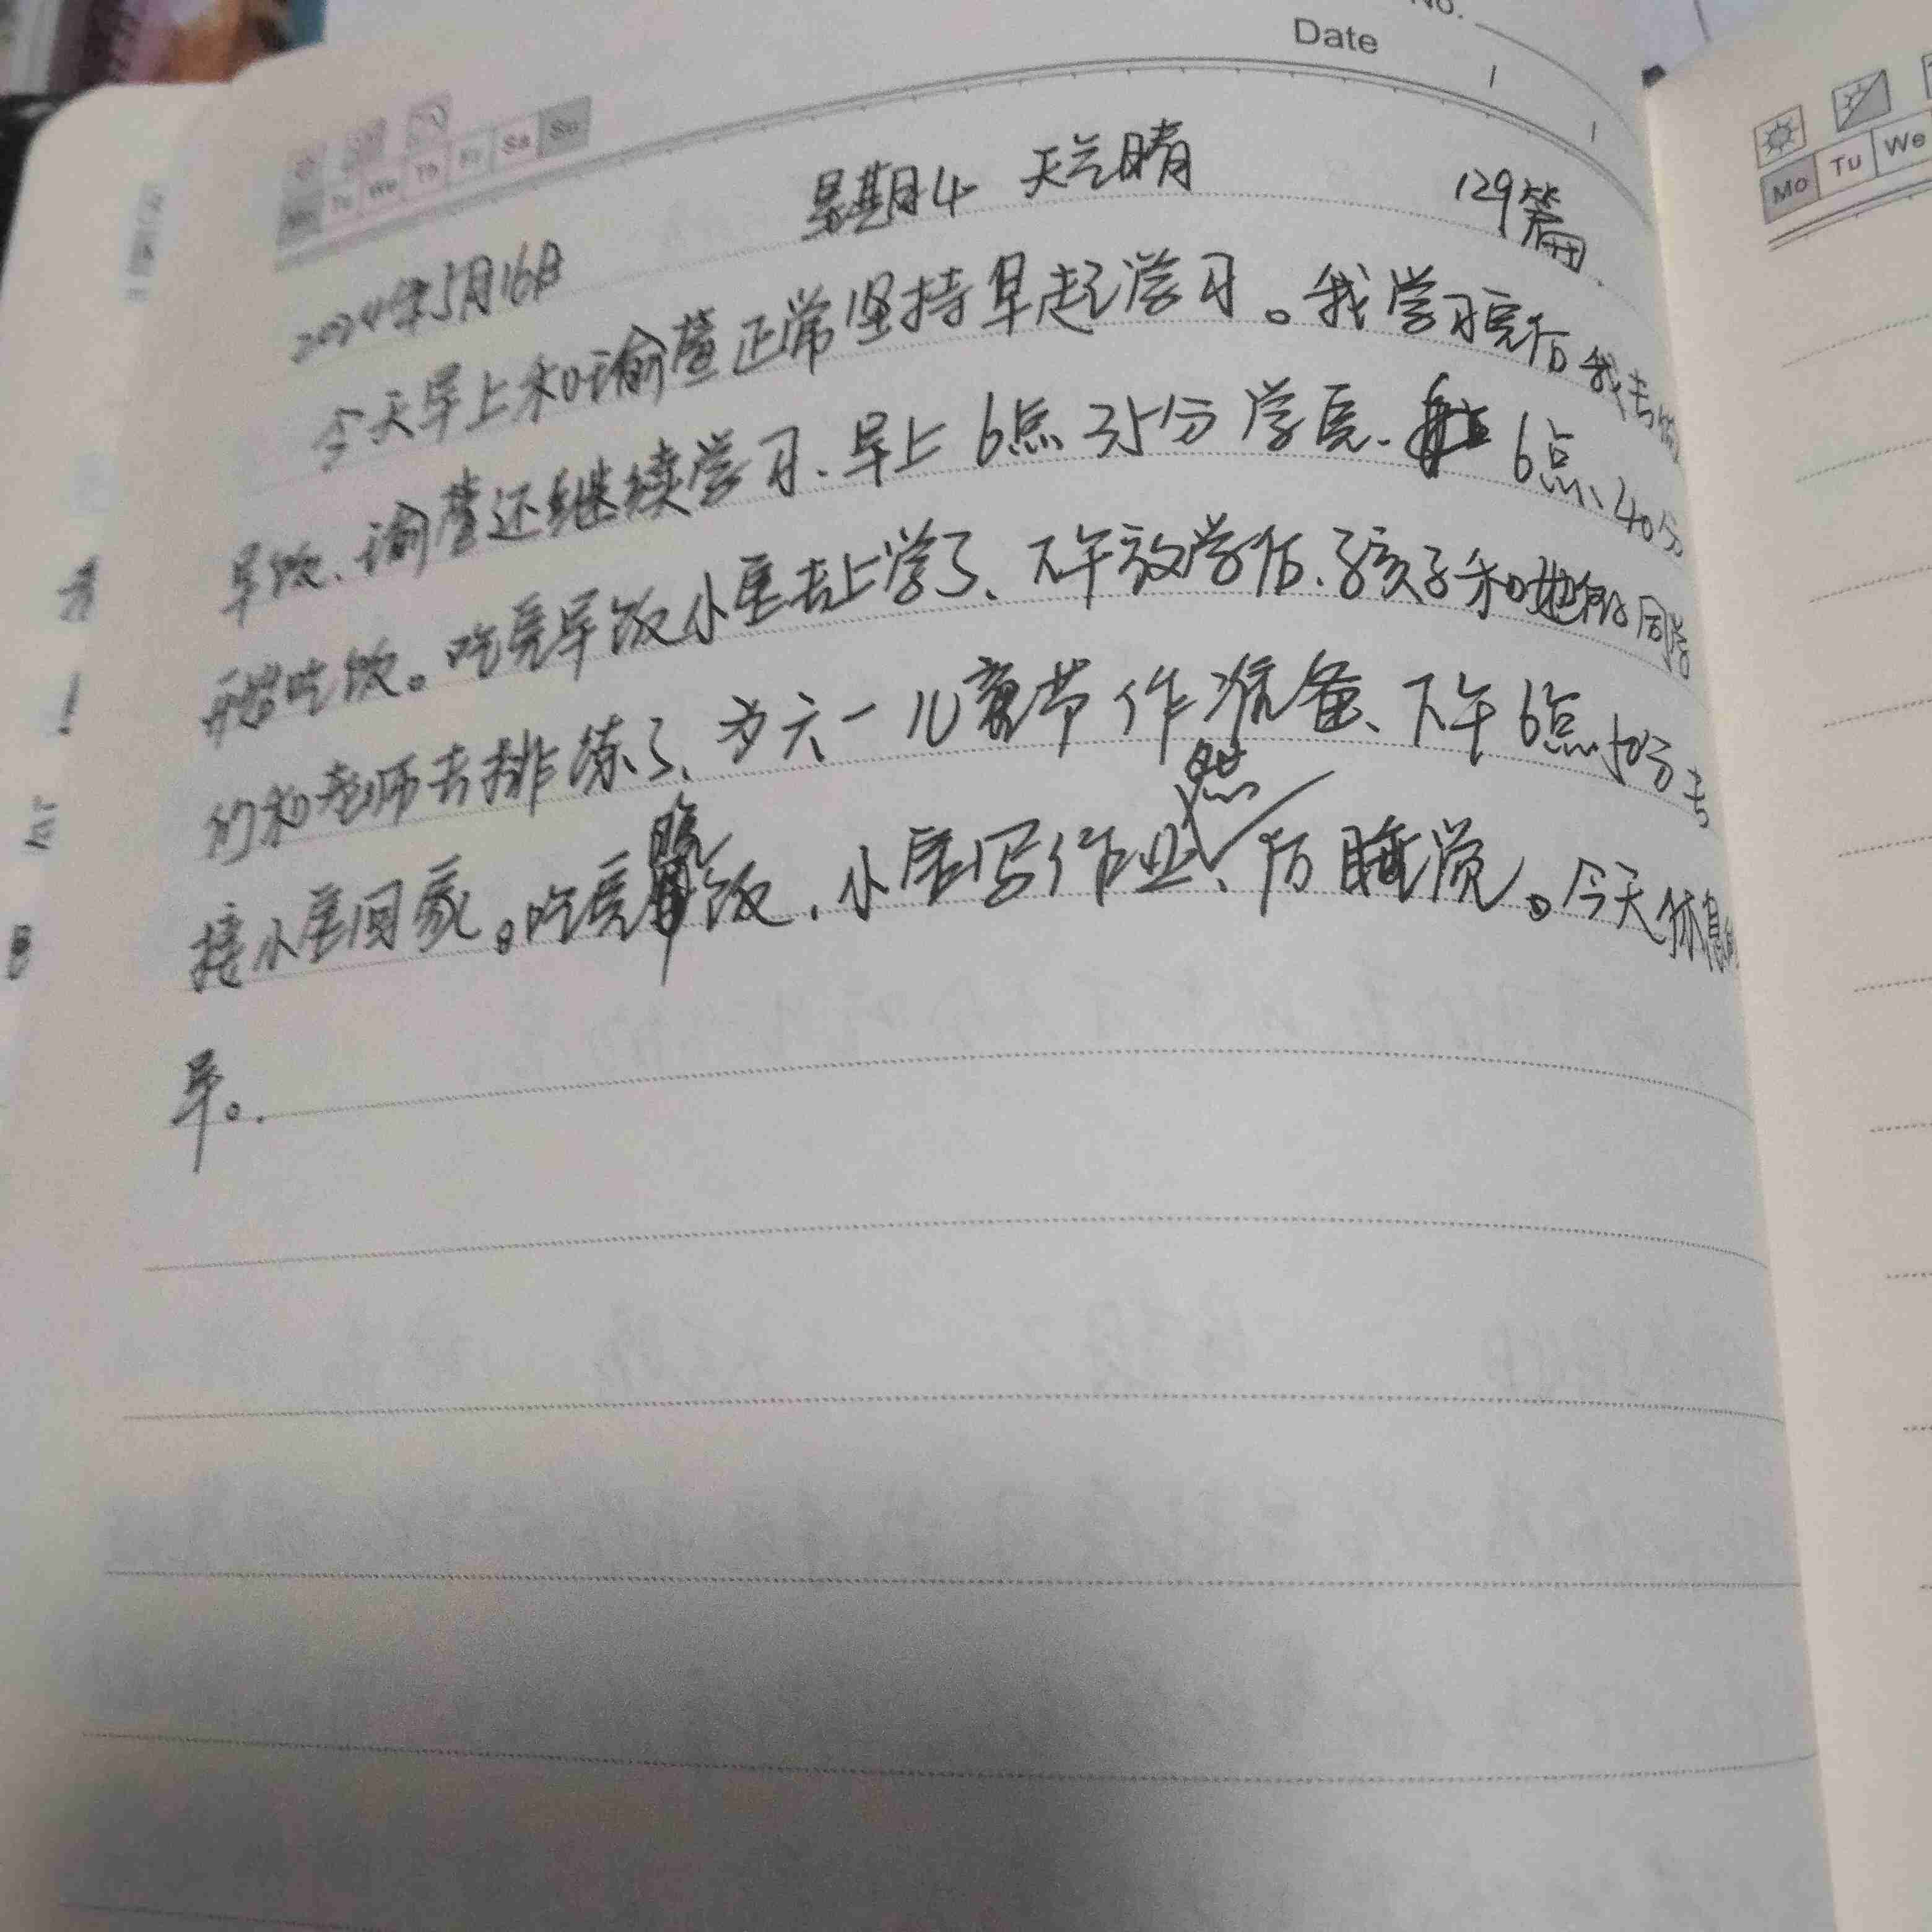 No.
Date
Mo Tu We Th Fr Sa Su
Mo Tu We
2024年5月16日 星期4 天气晴 129篇
今天早上和瑜萱正常坚持早起学习。我学习完后我去做
早饭、瑜萱还继续学习、早上6点35分学完、6点、40分
开始吃饭。吃完早饭小宝去上学了、下午放学后、孩子和她的同学
们和老师去排练了、为六一儿童节作准备、下午6点、50分去
接小宝回家。吃完晚饭、小宝写作业、然后睡觉。今天休息
早。